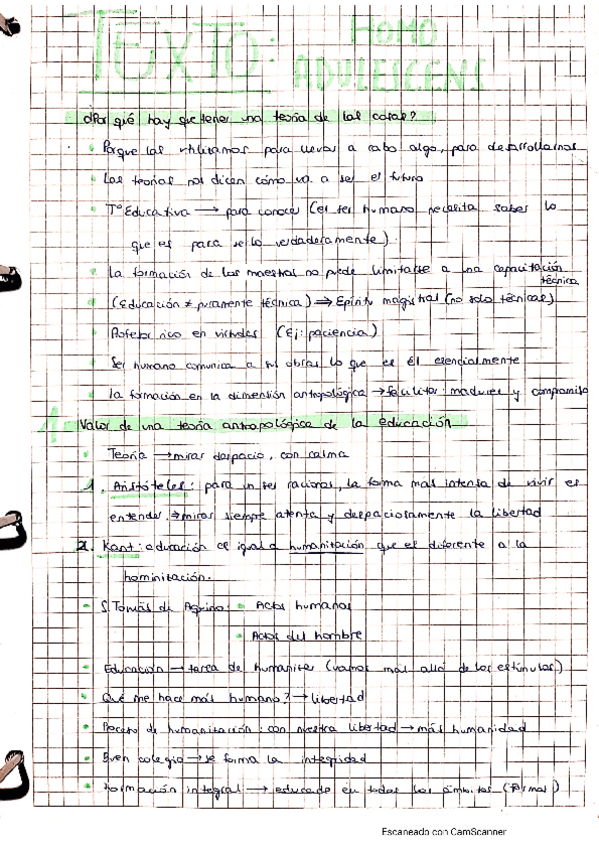 TEXTO: HOMO
ADULESCENS
¿Por qué hay que tener una teoría de las cosas?
Porque las utilizamos para llevar a cabo algo, para desarrollarnos
Las teorías nos dicen cómo va a ser el futuro
Tª Educativa → para conocer (el ser humano necesita saber lo
que es para serlo verdaderamente)
La formación de los maestros no puede limitarse a una capacitación
técnica
(Educación ≠ puramente técnica) ⇒ Espíritu magistral (no solo técnicas)
Profesor rico en virtudes (Ej: paciencia)
Ser humano comunica a sus obras lo que es él esencialmente
La formación en la dimensión antropológica → facilitar: madurez y compromiso
1 Valor de una teoría antropológica de la educación
Teoría → mirar despacio, con calma
1. Aristóteles: para un ser racional, la forma más intensa de vivir es
entender. → mirar siempre atenta y despaciosamente la libertad
2. Kant: educación es igual a humanización que es diferente a la
hominización.
S. Tomás de Aquino: Actos humanos
Actos del hombre
Educación → tarea de humanizar (vamos más allá de los estímulos)
Qué me hace más humano? → libertad
Proceso de humanización: con nuestra libertad → más humanidad
Buen colegio → se forma la integridad
Formación integral → educado en todos los ámbitos
Escaneado con CamScanner